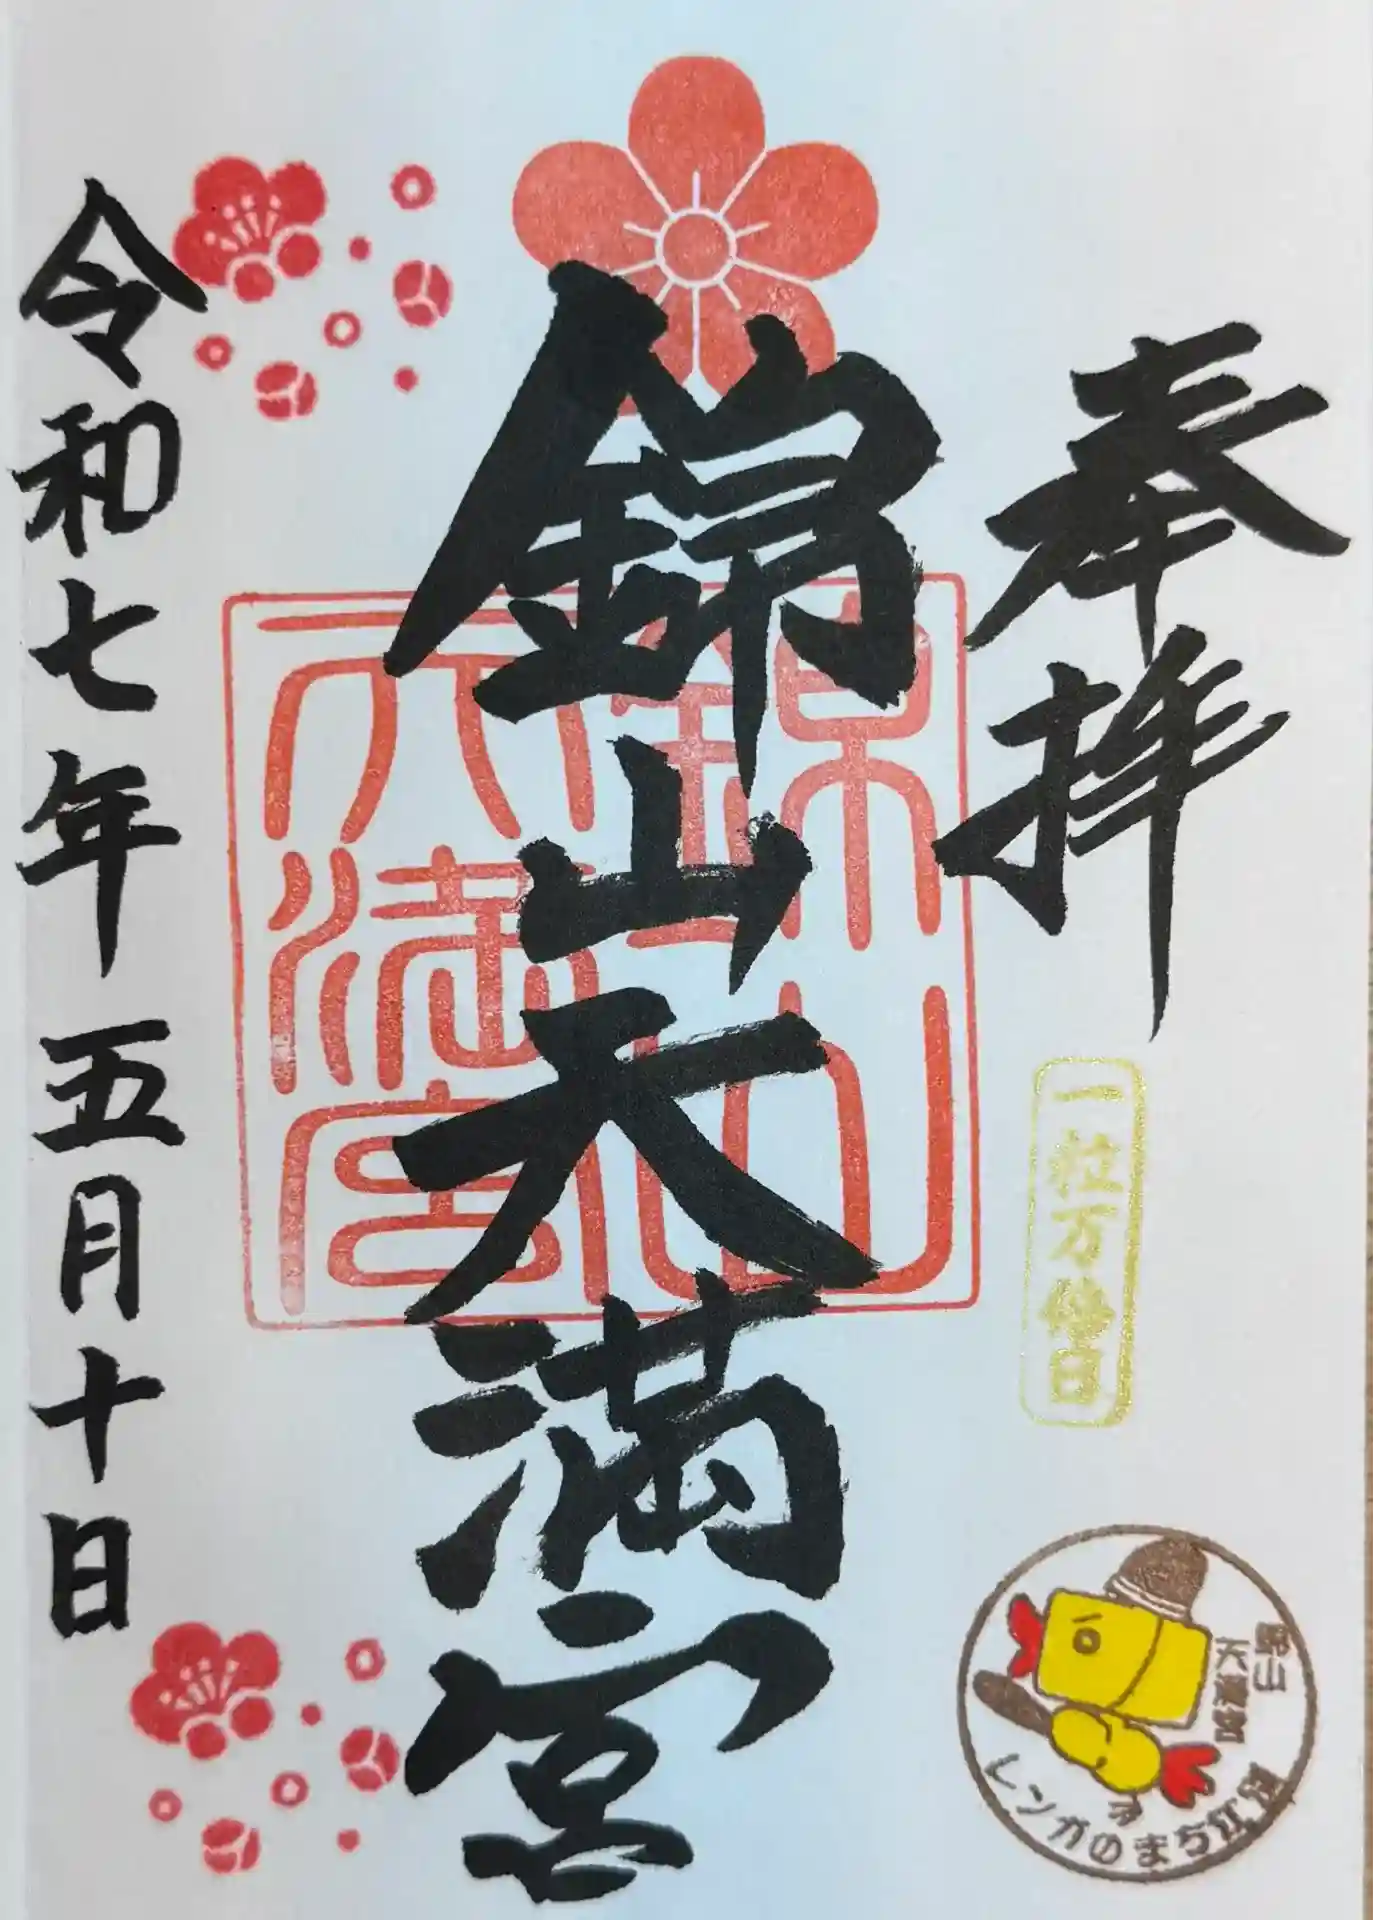 奉拝
一粒万倍日
錦山天満宮
錦山
天満宮
令和七年五月十日
錦山
天満宮
レンガのまち江別